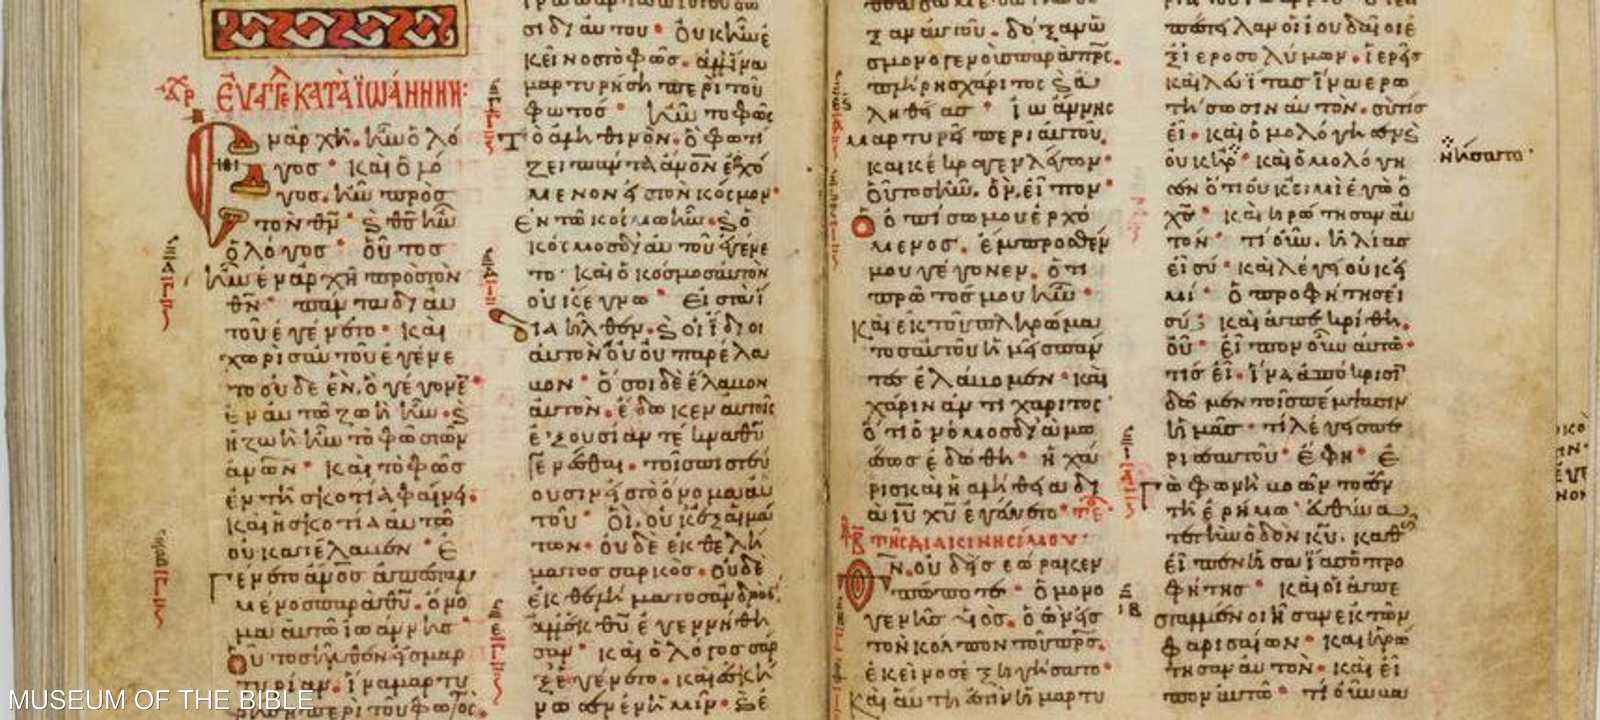 ΕΥΑΓΓΕ ΚΑΤΑ ΪΩΑΝΝΗΝ:
Εν ἀρχῆ. ἦν ὁ λό
γος · καὶ ὁ λό
γος. ἦν πρὸς
τὸν θν · θς ἦν
ὁ λόγος · οὗτος
ἦν ἐν ἀρχῆ πρὸς τὸν
θν · πάντα δι αυ
τοῦ ἐγένετο · καὶ
χωρὶς αυτοῦ ἐγένε
το οὐδὲ ἕν. ὃ γέγονεν
ἐν αυτῶ ζωὴ ἦν.
ἡ ζωὴ ἦν τὸ φῶς τῶν
ανων · καὶ τὸ φῶς
ἐν τῆ σκοτία φαίνει.
καὶ ἡ σκοτία αυτὸ
οὐ κατέλαβεν · ἐ
γένετο ανος ἀπεσταλ
μένος παρὰ θυ. ὄνο
μα αυτῶ ἰωάννης ·
οὗτος ἦλθεν εἰς μαρ
τυρίαν. ἵνα μαρτυ
ρήση περὶ τοῦ φωτός.
οὐκ ἦν ἐ
κεῖνος τὸ φῶς. ἀλλ ἵνα
μαρτυρήση περὶ τοῦ
φωτός · ἦν τὸ φῶς
τὸ ἀληθινὸν. ὃ φωτί
ζει πάντα ανον ἐρχό
μενον εἰς τὸν κόσμον ·
ἐν τῶ κόσμω ἦν. ὁ
κόσμος δι αυτοῦ ἐγένε
το · καὶ ὁ κόσμος αυτὸν
οὐκ ἔγνω · εἰς τὰ ἴ
δια ἦλθεν. οἱ ἴδιοι
αυτὸν οὐ παρέλα
βον · ὅσοι δὲ ἔλαβον
αυτὸν. ἔδωκεν αυτοῖς
ἐξουσίαν τέκνα θυ
γενέσθαι. τοῖς πιστεύ
ουσιν εἰς τὸ ὄνομα αυ
τοῦ · οἳ οὐκ ἐξ αἱμά
των · οὐδὲ ἐκ θελή
ματος σαρκὸς. οὐδὲ
ἐκ θελήματος ἀνδρὸς.
ἀλλ ἐκ θυ ἐγεννήθη
σαν · καὶ ὁ λόγος σὰρ
ξ ἐγένετο. καὶ ἐσκή
νωσεν ἐν ἡμῖν.
σμονογενοῦς παρὰ πρς.
πλήρης χάριτος
ληθείας · ἰωάννης
μαρτυρεῖ περὶ αυτοῦ.
καὶ κέκραγεν λέγων ·
οὗτος ἦν. ὃν εἶπον ·
ὁ ὀπίσω μου ἐρχό
μενος. ἔμπροσθέν
μου γέγονεν. ὅτι
πρῶτός μου ἦν ·
καὶ ἐκ τοῦ πληρώμα
τος αυτοῦ ἡμεῖς πάν
τες ἐλάβομεν · καὶ
χάριν ἀντὶ χάριτος ·
ὅτι ὁ νόμος διὰ μω
σέως ἐδόθη · ἡ χά
ρις καὶ ἡ ἀλήθεια δι
ὰ ιυ χυ ἐγένετο ·
ΤΗΣ ΔΙΑΚΙΝΗΣΙΜΟΥ·
θν. οὐδεὶς ἑώρακεν
πώποτε · ὁ μονο
γενὴς υἱός. ὁ ὢν εἰς
τὸν κόλπον τοῦ πρς.
ἐκεῖνος ἐξηγήσατο ·
καὶ αυτη ἐστὶν ἡ μαρτυ
ἐξ ιεροσολύμων. ἱερεῖς
καὶ λευίτας ἵνα ἐρω
τήσωσιν αυτὸν. σὺ τίς
εἶ · καὶ ὡμολόγησεν
οὐκ ἠρ · καὶ ὡμολόγη
σεν ὅτι οὐκ εἰμὶ ἐγὼ ὁ
χς · καὶ ἠρώτησαν αυ
τὸν · τί οὖν. ἠλίας
εἶ σύ · καὶ λέγει οὐκ εἰ
μί · ὁ προφήτης εἶ
σύ; καὶ ἀπεκρίθη.
οὔ · εἶπον οὖν αυτῶ ·
τίς εἶ. ἵνα ἀπόκρισιν
δῶμεν τοῖς πέμψασιν
ἡμᾶς · τί λέγεις πε
ρὶ σεαυτοῦ · ἔφη · ἐ
γὼ φωνὴ βοῶντος ἐν
τῆ ἐρήμω · εὐθύνα
τε τὴν ὁδὸν κυ. καθ
εἶπεν ἡσαΐας ὁ προ
φήτης · καὶ οἱ ἀπε
σταλμένοι ἦσαν ἐκ τῶν
φαρισαίων · καὶ ἠρώ
τησαν αυτὸν · καὶ εἶ
πον αυτῶ · τί οὖν βα
MUSEUM OF THE BIBLE